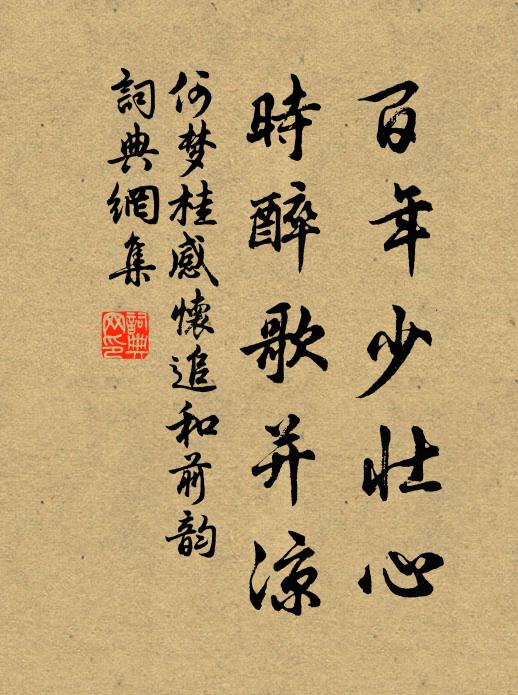 百年少壮心
時醉歌并涼
何梦桂感懷追和前韵
詞典網集
詞典网印